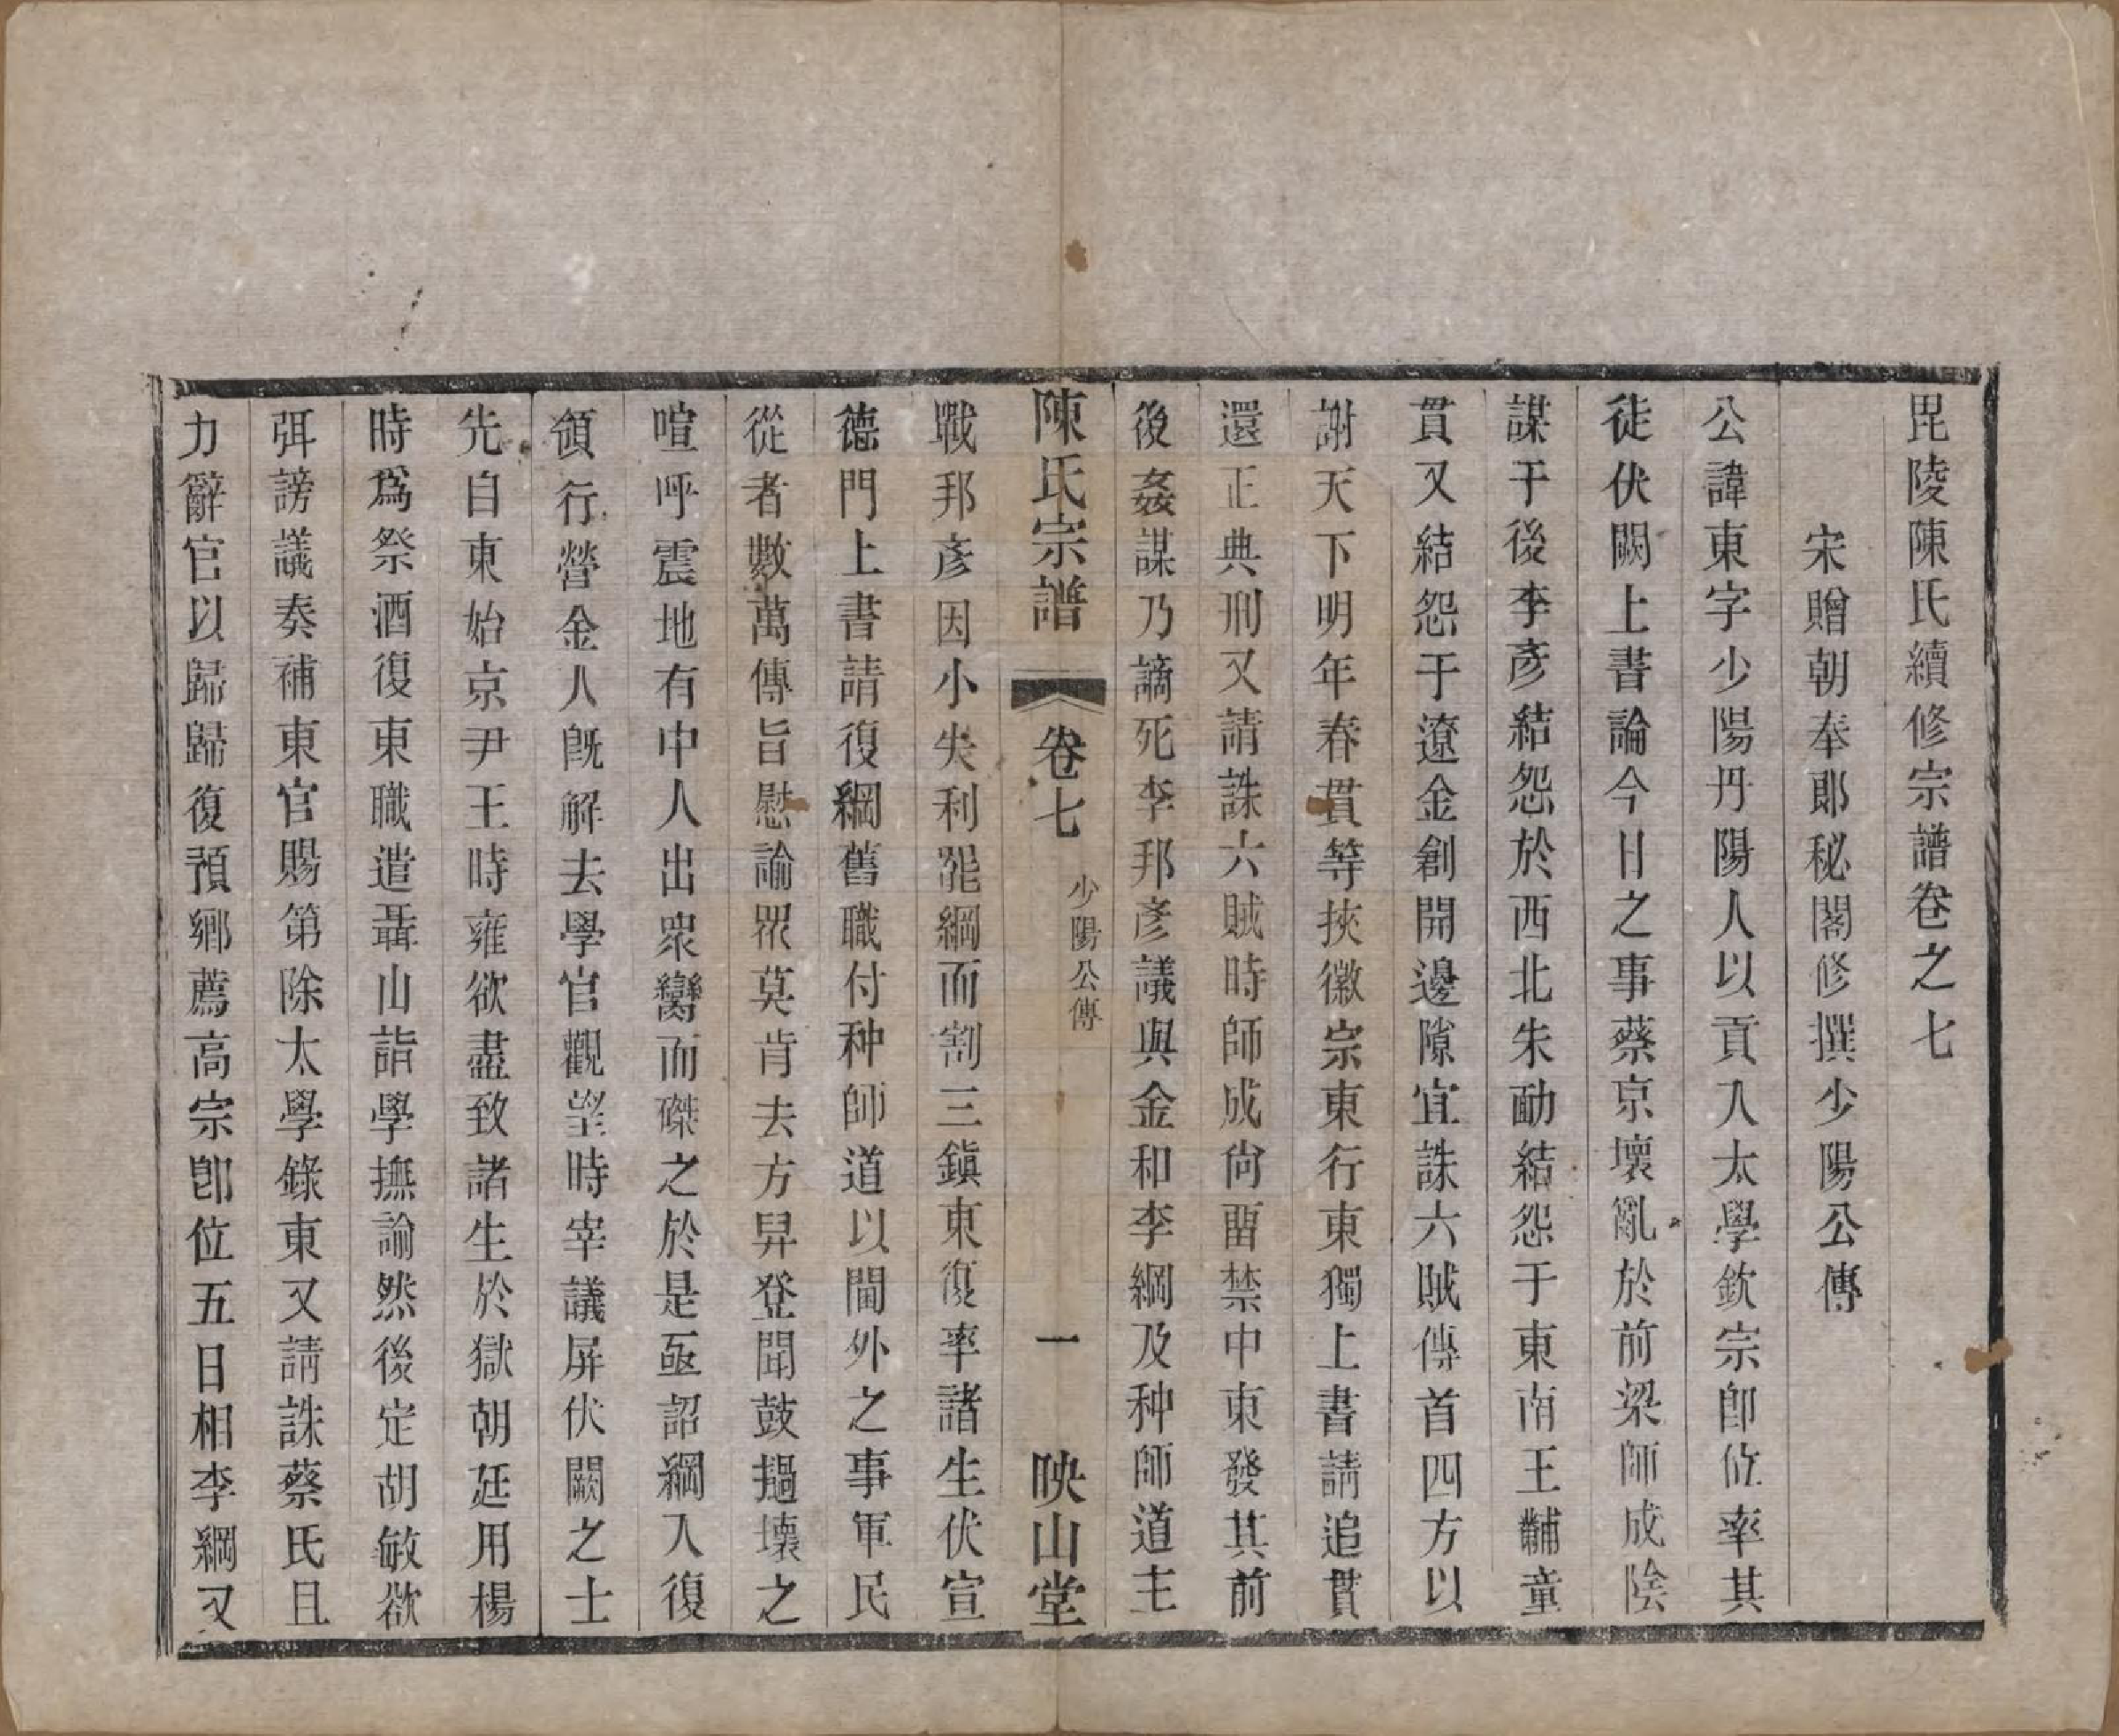 毘陵陳氏續修宗譜卷之七
宋贈朝奉郞秘閣修撰少陽公傳
公諱東字少陽丹陽人以貢入太學欽宗卽位率其
徒伏闕上書論今日之事蔡京壞亂於前梁師成陰
謀于後李彥結怨於西北朱勔結怨于東南王黼童
貫又結怨于遼金創開邊隙宜誅六賊傳首四方以
謝天下明年春貫等挾徽宗東行東獨上書請追貫
還正典刑又請誅六賊時師成尙畱禁中東發其前
後姦謀乃謫死李邦彥議與金和李綱及种師道主
陳氏宗譜 卷七 少陽公傳 一 映山堂
戰邦彥因小失利罷綱而割三鎭東復率諸生伏宣
德門上書請復綱舊職付种師道以閫外之事軍民
從者數萬傳旨慰諭眾莫肯去方舁登聞鼓撾壞之
喧呼震地有中人出衆臠而磔之於是亟詔綱入復
領行營金人旣解去學官觀望時宰議屏伏闕之士
先自東始京尹王時雍欲盡致諸生於獄朝廷用楊
時爲祭酒復東職遣聶山詣學撫諭然後定胡敏欲
弭謗議奏補東官賜第除太學錄東又請誅蔡氏且
力辭官以歸歸復預鄕薦高宗卽位五日相李綱又